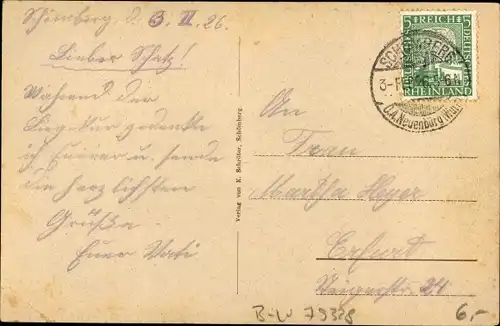 Schömberg, d. 3. II. 26.
Lieber Schatz!
Während der
Liegekur gedenke
ich Eurer u. sende
die herzlichsten
Grüße
Euer Vati
Verlag von K. Schröter, Schömberg
5 REICH 5
DEUTSCHES
RHEINLAND
SCHÖMBERG
3-FEB 26. 5-6 N
O.A. Neuenburg (Württ)
An
Frau
Martha Heyer
Erfurt
24
B-Lu 79328
6,-